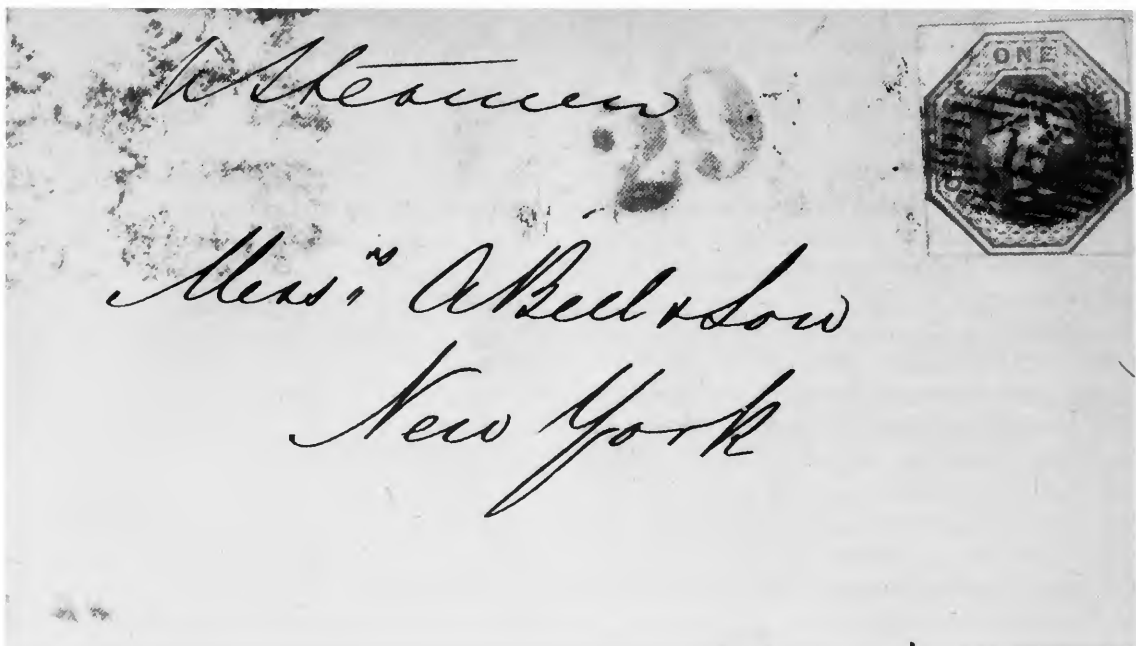 ONE
P Steamer
29
Mess.rs A Bell & Son
New York